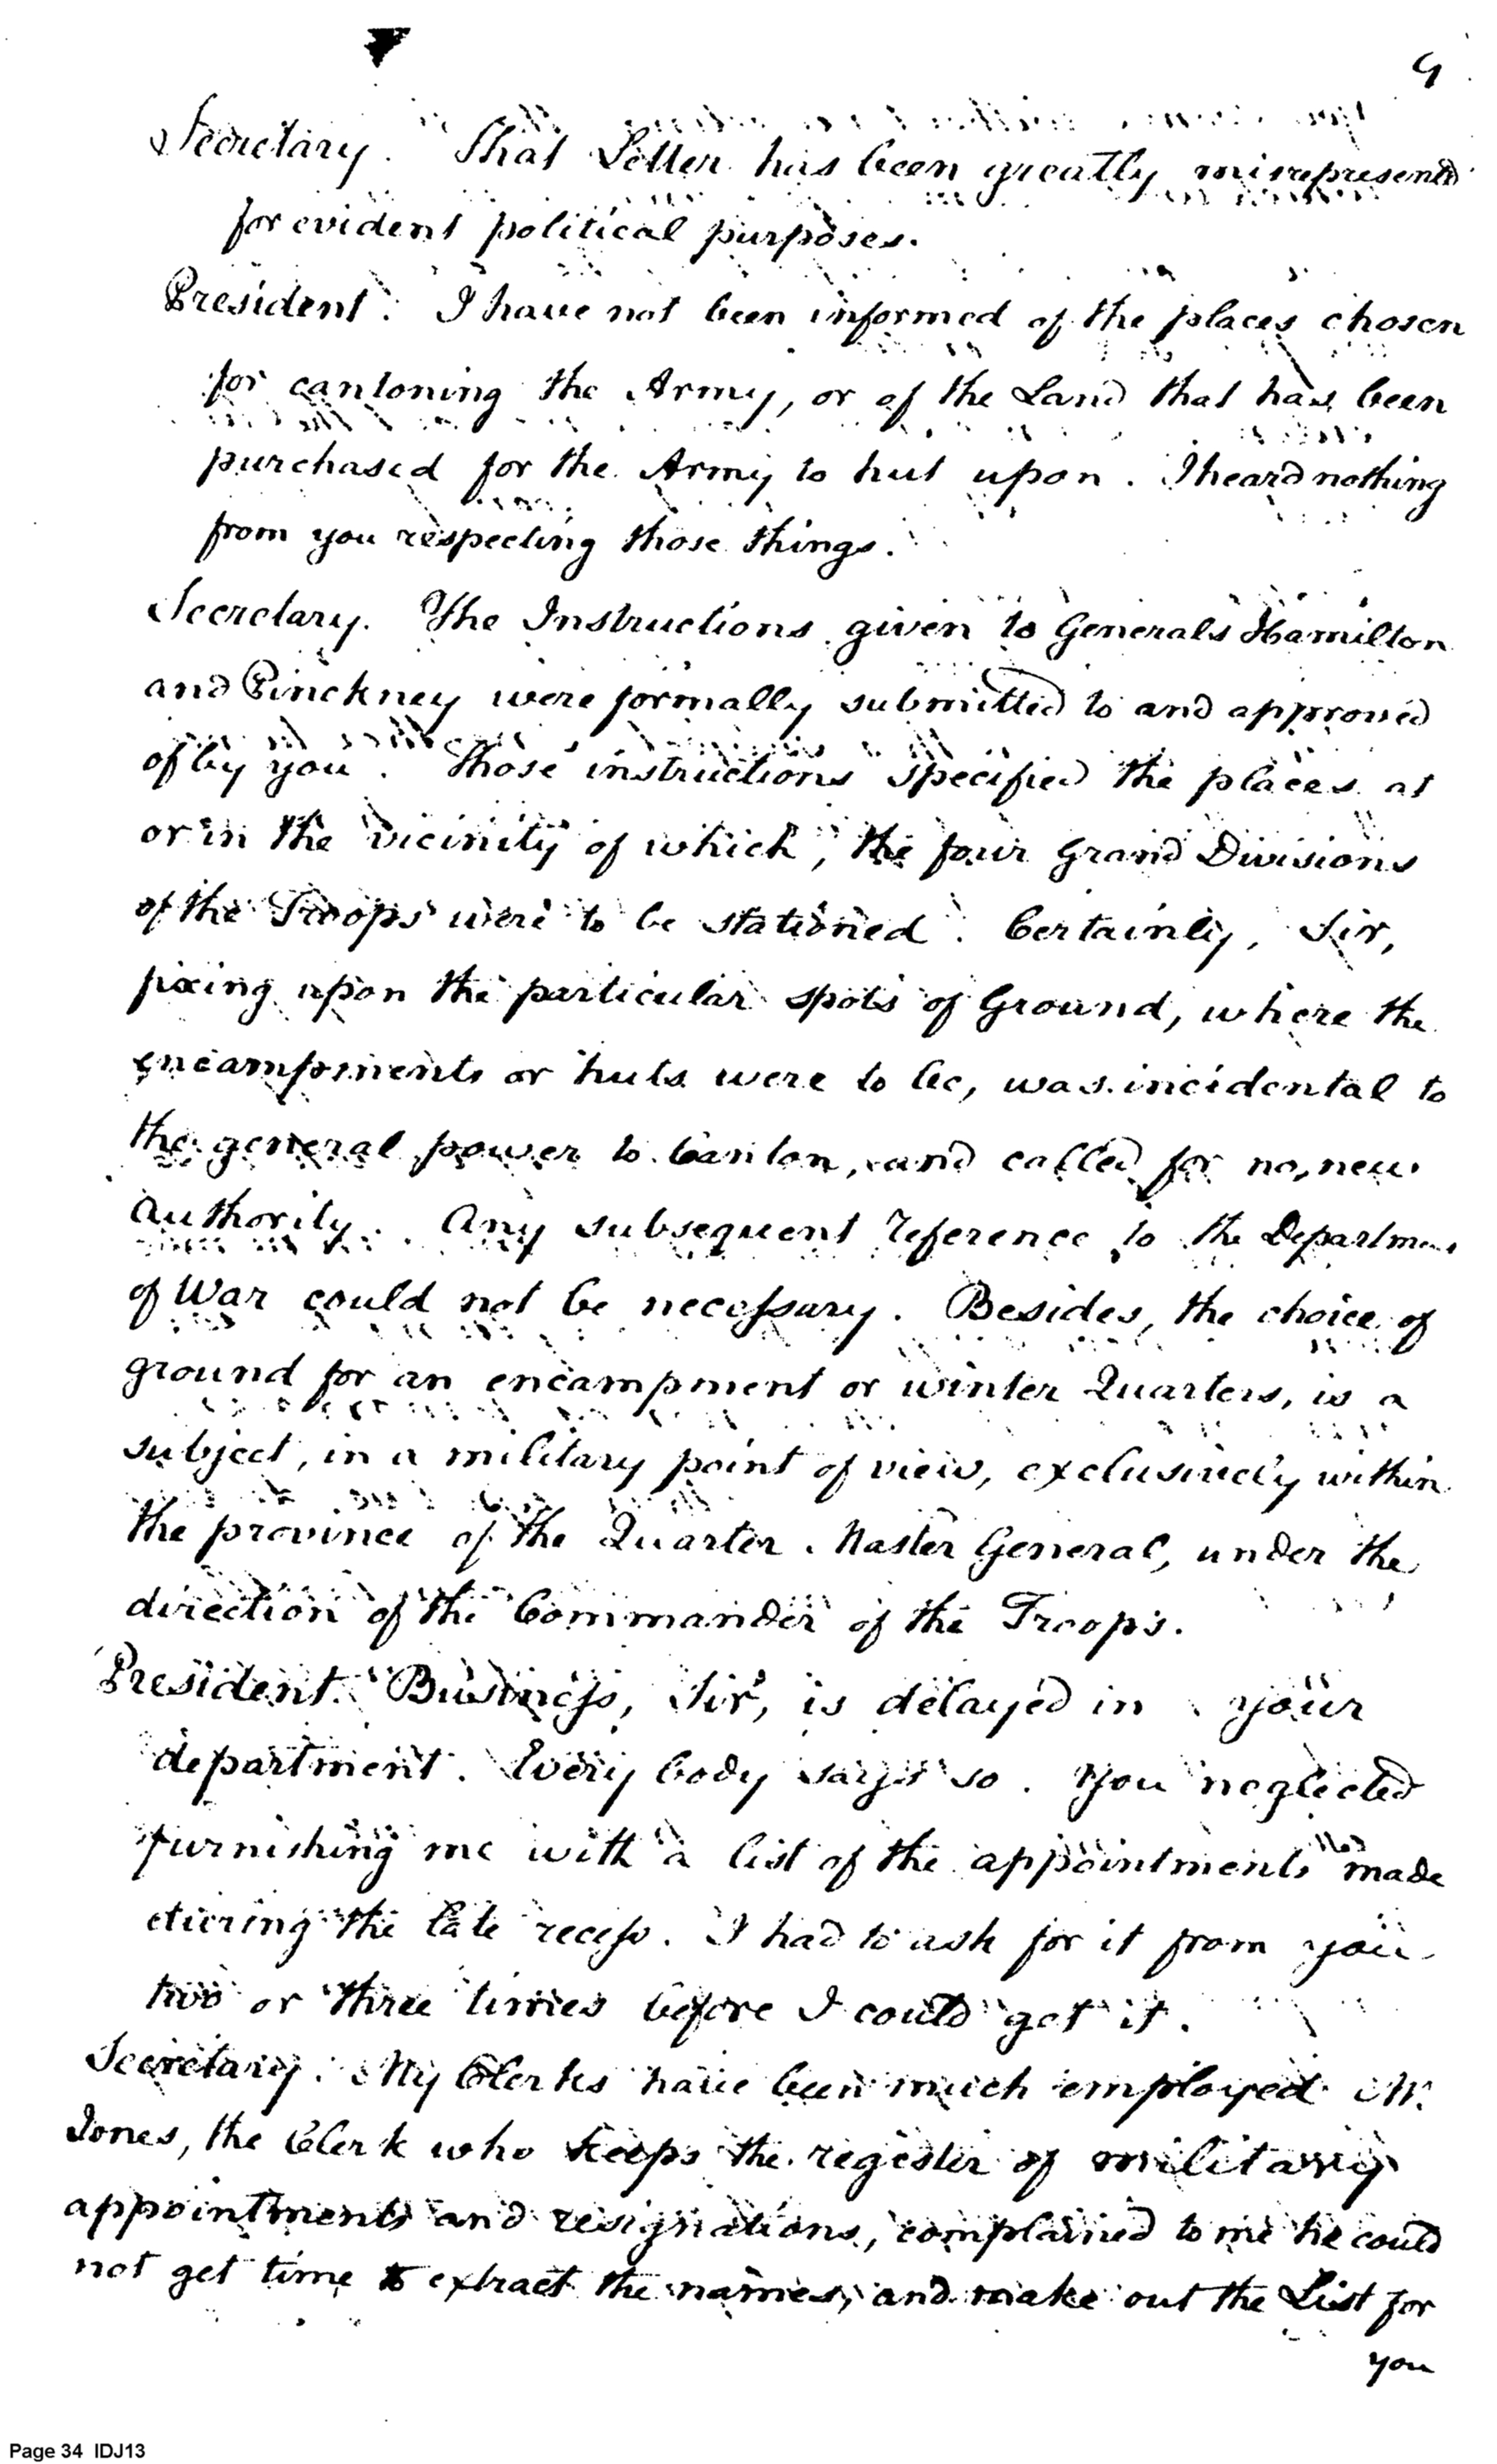 9
Secretary. That Letter has been greatly misrepresented
for evident political purposes.
President. I have not been informed of the places chosen
for cantoning the Army, or of the Land that has been
purchased for the Army to hut upon. I heard nothing
from you respecting those things.
Secretary. The Instructions given to Generals Hamilton
and Pinckney were formally submitted to and approved
of by you. Those instructions specified the places at
or in the vicinity of which, the four Grand Divisions
of the Troops were to be stationed. Certainly, Sir,
fixing upon the particular spots of Ground, where the
encampments or huts were to be, was incidental to
the general power to Canton, and called for no, new
authority. Any subsequent reference to the Departmen
of War could not be necessary. Besides, the choice of
ground for an encampment or winter Quarters, is a
subject, in a military point of view, exclusively within
the province of the Quarter Master General, under the
direction of the Commander of the Troops.
President. Business, Sir, is delayed in your
department. Every body says so. You neglected
furnishing me with a list of the appointments made
during the late recess. I had to ask for it from you
two or three times before I could get it.
Secretary. My Clerks have been much employed Mr.
Jones, the Clerk who keeps the register of military
appointments and resignations, complained to me he could
not get time to extract the names, and make out the List for
you
Page 34 IDJ13